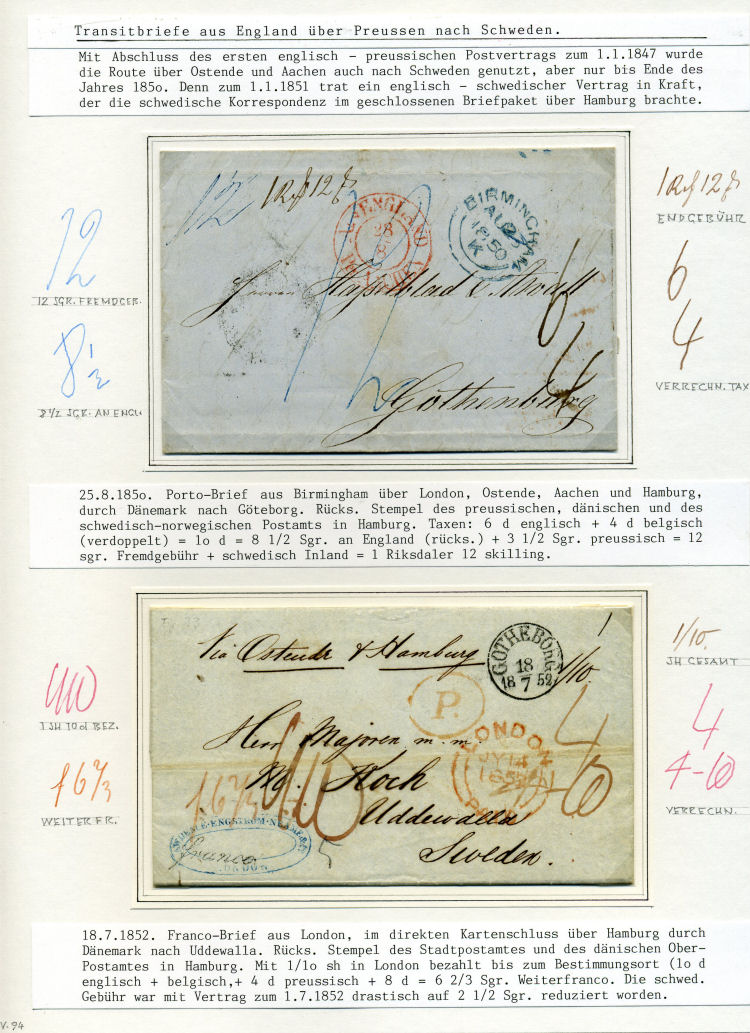 Transitbriefe aus England über Preussen nach Schweden.
Mit Abschluss des ersten englisch - preussischen Postvertrags zum 1.1.1847 wurde
die Route über Ostende und Aachen auch nach Schweden genutzt, aber nur bis Ende des
Jahres 185o. Denn zum 1.1.1851 trat ein englisch - schwedischer Vertrag in Kraft,
der die schwedische Korrespondenz im geschlossenen Briefpaket über Hamburg brachte.
12
12 SGR. FREMDGEB.
8 1/2
8 1/2 SGR. AN ENGL.
12
ENGLAND
28
8
BIRMINGHAM
AU 25
1850
K
6
4
Göthenburg
ENDGEBÜHR
6
4
VERRECHN. TAX
25.8.185o. Porto-Brief aus Birmingham über London, Ostende, Aachen und Hamburg,
durch Dänemark nach Göteborg. Rücks. Stempel des preussischen, dänischen und des
schwedisch-norwegischen Postamts in Hamburg. Taxen: 6 d englisch + 4 d belgisch
(verdoppelt) = 1o d = 8 1/2 Sgr. an England (rücks.) + 3 1/2 Sgr. preussisch = 12
sgr. Fremdgebühr + schwedisch Inland = 1 Riksdaler 12 skilling.
1/10
1 SH 10 d BEZ.
f 6 2/3
WEITERFR.
Via Ostende & Hamburg
GÖTHEBORG
18
18 7 52
1/10.
P.
LONDON
JY 14
1852
PAID
4
Herr Majoren m. m.
Koch
Uddewalla
Sweden.
franco
1/10.
SH GESAMT
4
4-6
VERRECHN.
18.7.1852. Franco-Brief aus London, im direkten Kartenschluss über Hamburg durch
Dänemark nach Uddewalla. Rücks. Stempel des Stadtpostamtes und des dänischen Ober-
Postamtes in Hamburg. Mit 1/1o sh in London bezahlt bis zum Bestimmungsort (1o d
englisch + belgisch,+ 4 d preussisch + 8 d = 6 2/3 Sgr. Weiterfranco. Die schwed.
Gebühr war mit Vertrag zum 1.7.1852 drastisch auf 2 1/2 Sgr. reduziert worden.
V.94